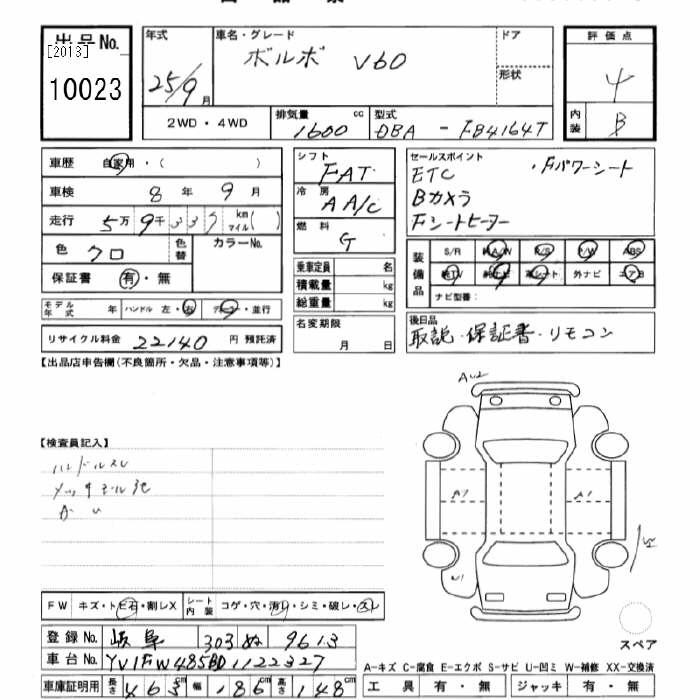 出品No.
[2013]
10023
年式 25/9月
車名・グレード ボルボ V60
ドア
形状
2WD・4WD
排気量 1600 cc
型式 DBA - FB4164T
評価点 4
内装 B
車歴 自家用・( )
車検 8年 9月
走行 5万 9千 337 km マイル( )
色 クロ 色替 カラーNo.
保証書 有・無
モデル年式 年 ハンドル 左・右 ディーラー・並行
リサイクル料金 22140 円 預託済
シフト FAT
冷房 AA/C
燃料 G
乗車定員 名
積載量 kg
総重量 kg
名変期限 月 日
セールスポイント
ETC ・Fパワーシート
Bカメラ
Fシートヒーター
装備品 S/R 純A/W P/S P/W ABS
純TV 純ナビ 革シート 外ナビ エアB
ナビ型番:
後日品
取説・保証書・リモコン
【出品店申告欄(不良箇所・欠品・注意事項等)】
【検査員記入】
ハンドルスレ
メッキモール
AU2
A1 A1
FW キズ・トビ石・割レX シート内装 コゲ・穴・汚レ・シミ・破レ・スレ
登録No. 岐阜 303 ぬ 9613
車台No. YV1FW485BD1122327
車庫証明用 長さ 463cm 幅 186cm 高さ 148cm
スペア
A-キズ C-腐食 E-エクボ S-サビ U-凹ミ W-補修 XX-交換済
工具 有・無 ジャッキ 有・無